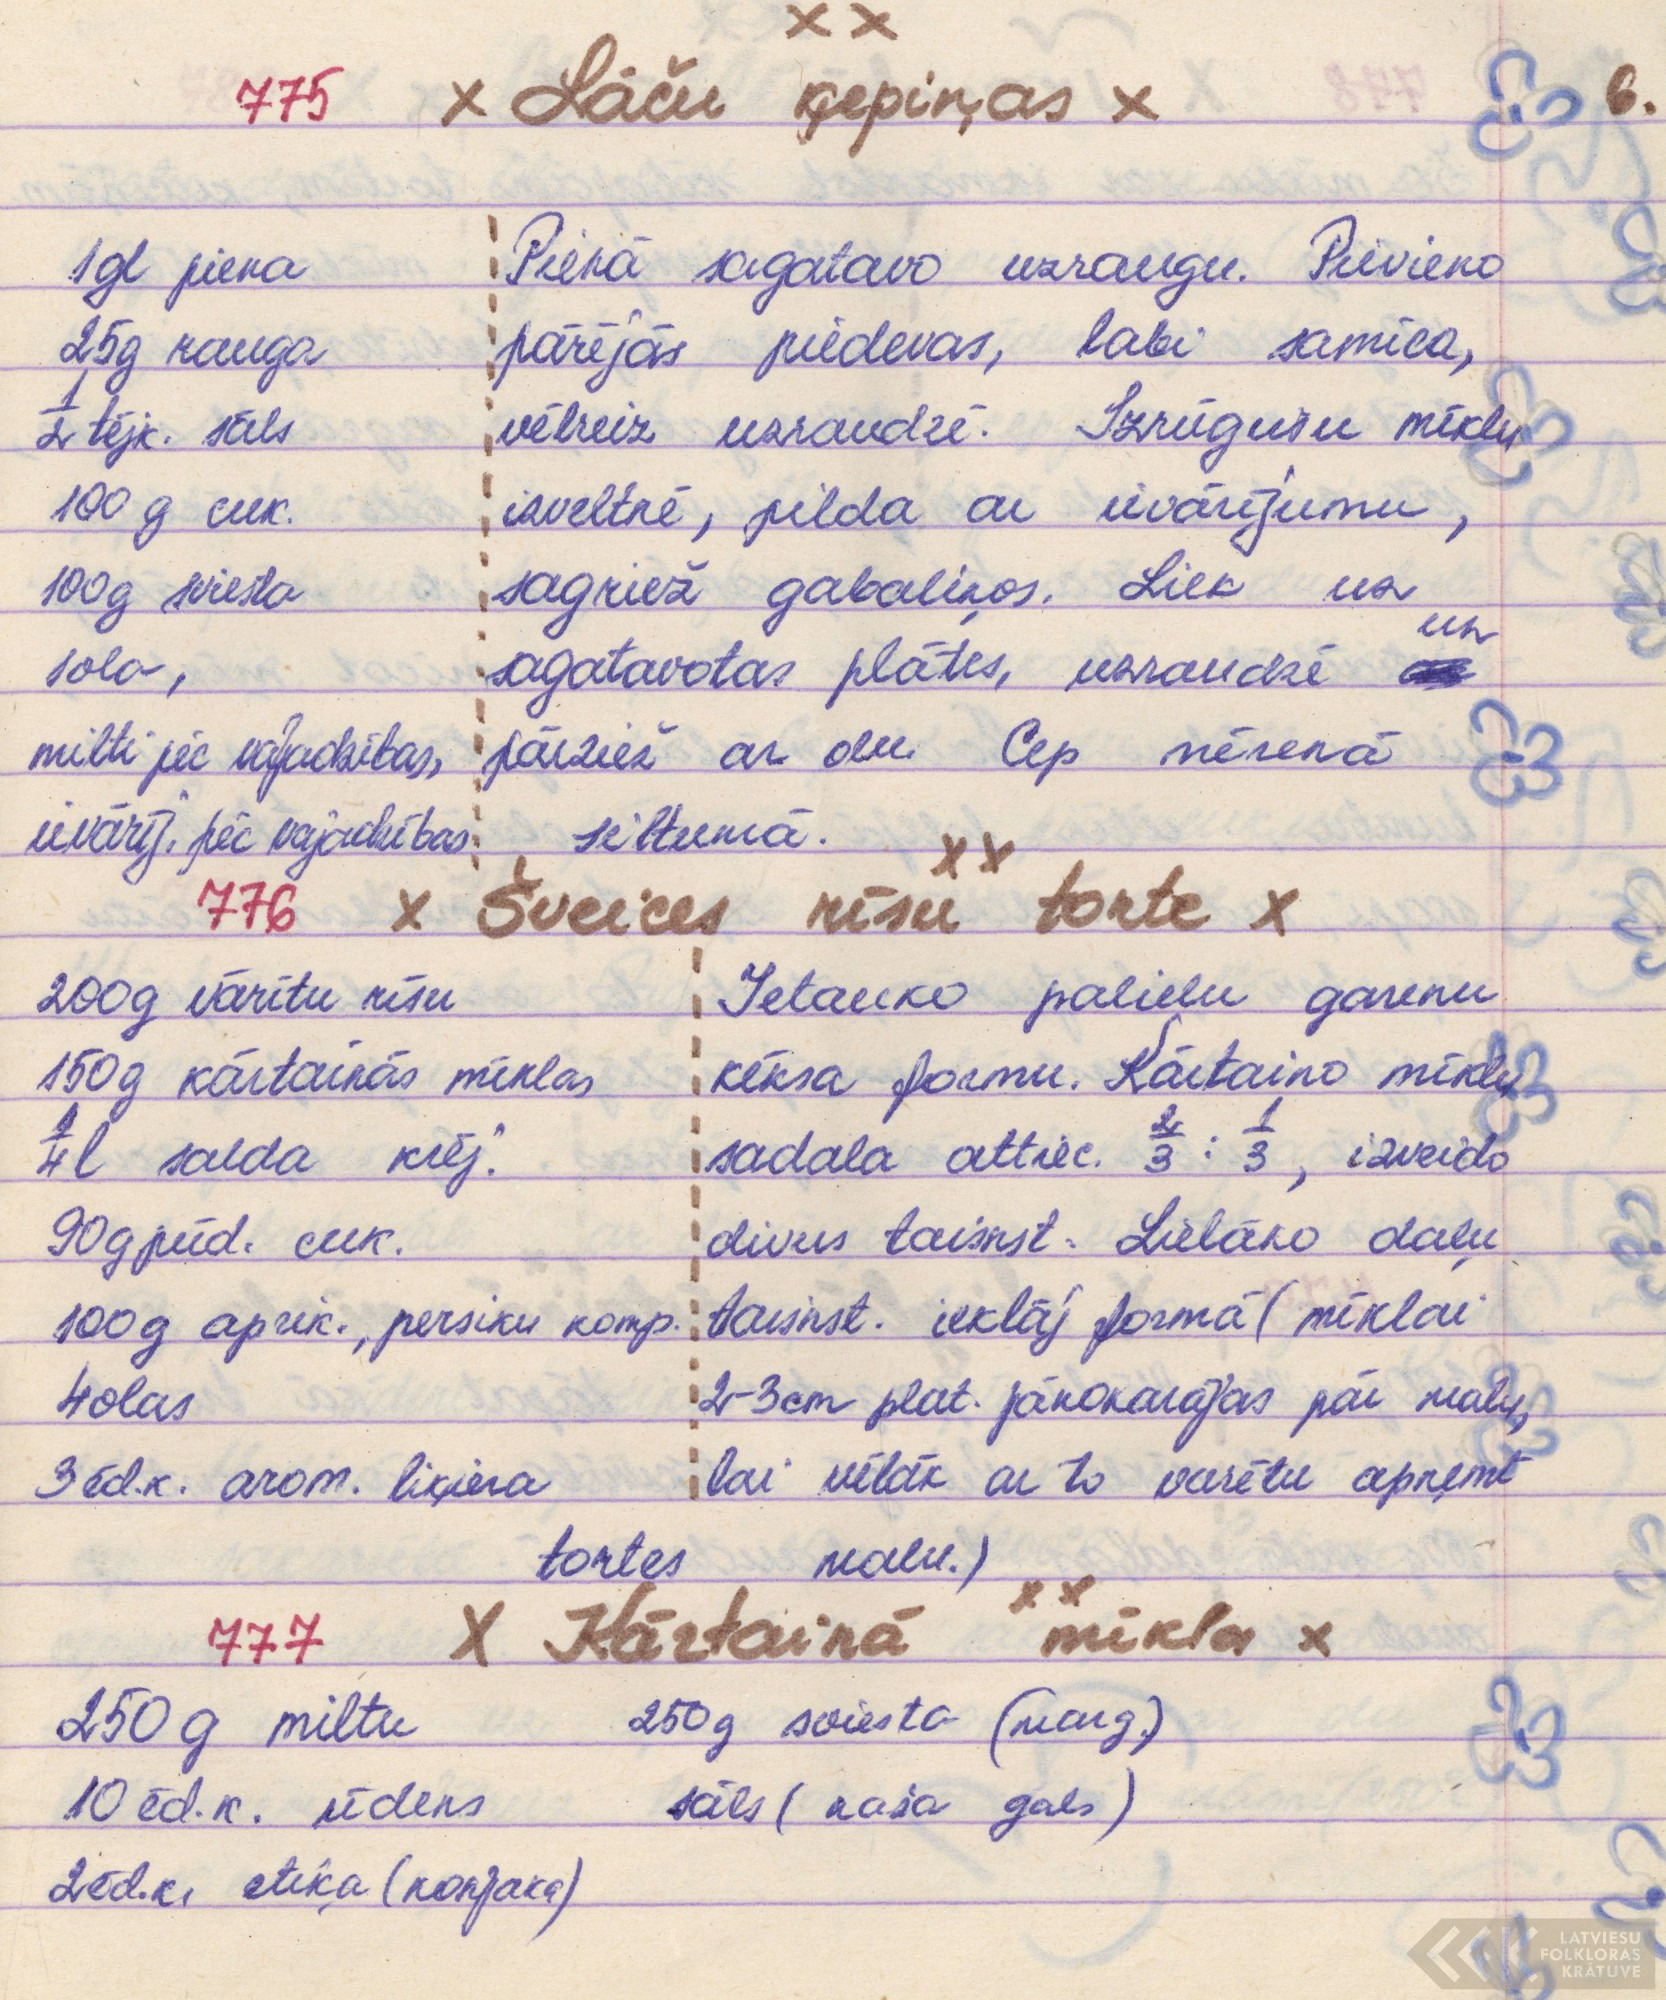 x x
775 x Lāču ķepiņas x 6.
1gl piena
25g rauga
1/2 tējk. sāls
100 g cuk.
100g sviesta
1 ola,
milti pēc vajadzības,
ievārīj. pēc vajadzības
Pienā sagatavo uzraugu. Pievieno
pārējās piedevas, labi samīca,
vēlreiz uzraudzē. Izrūgušu mīklu
izveltnē, pilda ar ievārījumu,
sagriež gabaliņos. Liek uz
sagatavotas plātes, uzraudzē un
pārziež ar olu. Cep mērenā
siltumā.
x x
776 x Šveices rīsu torte x
200g vārītu rīsu
150g kārtainās mīklas
1/4 l salda krēj.
90g pūd. cuk.
100g aprik., persiku komp.
4 olas
3 ēd.k. arom. liķiera
Ietauko palielu garenu
kēksa formu. Kārtaino mīklu
sadala attiec. 2/3 : 1/3, izveido
divus taisnst. Lielāko daļu
taisnst. ieklāj formā (mīklai
2-3cm plat. jānokarājas pār malu,
lai vēlāk ar to varētu apņemt
tortes malu.)
x x
777 X Kārtainā mīkla x
250 g miltu 250g sviesta (marg.)
10 ēd.k. ūdens sāls (naža gals)
2 ēd.k. etiķa (konjaka)
LATVIEŠU
FOLKLORAS
KRĀTUVE